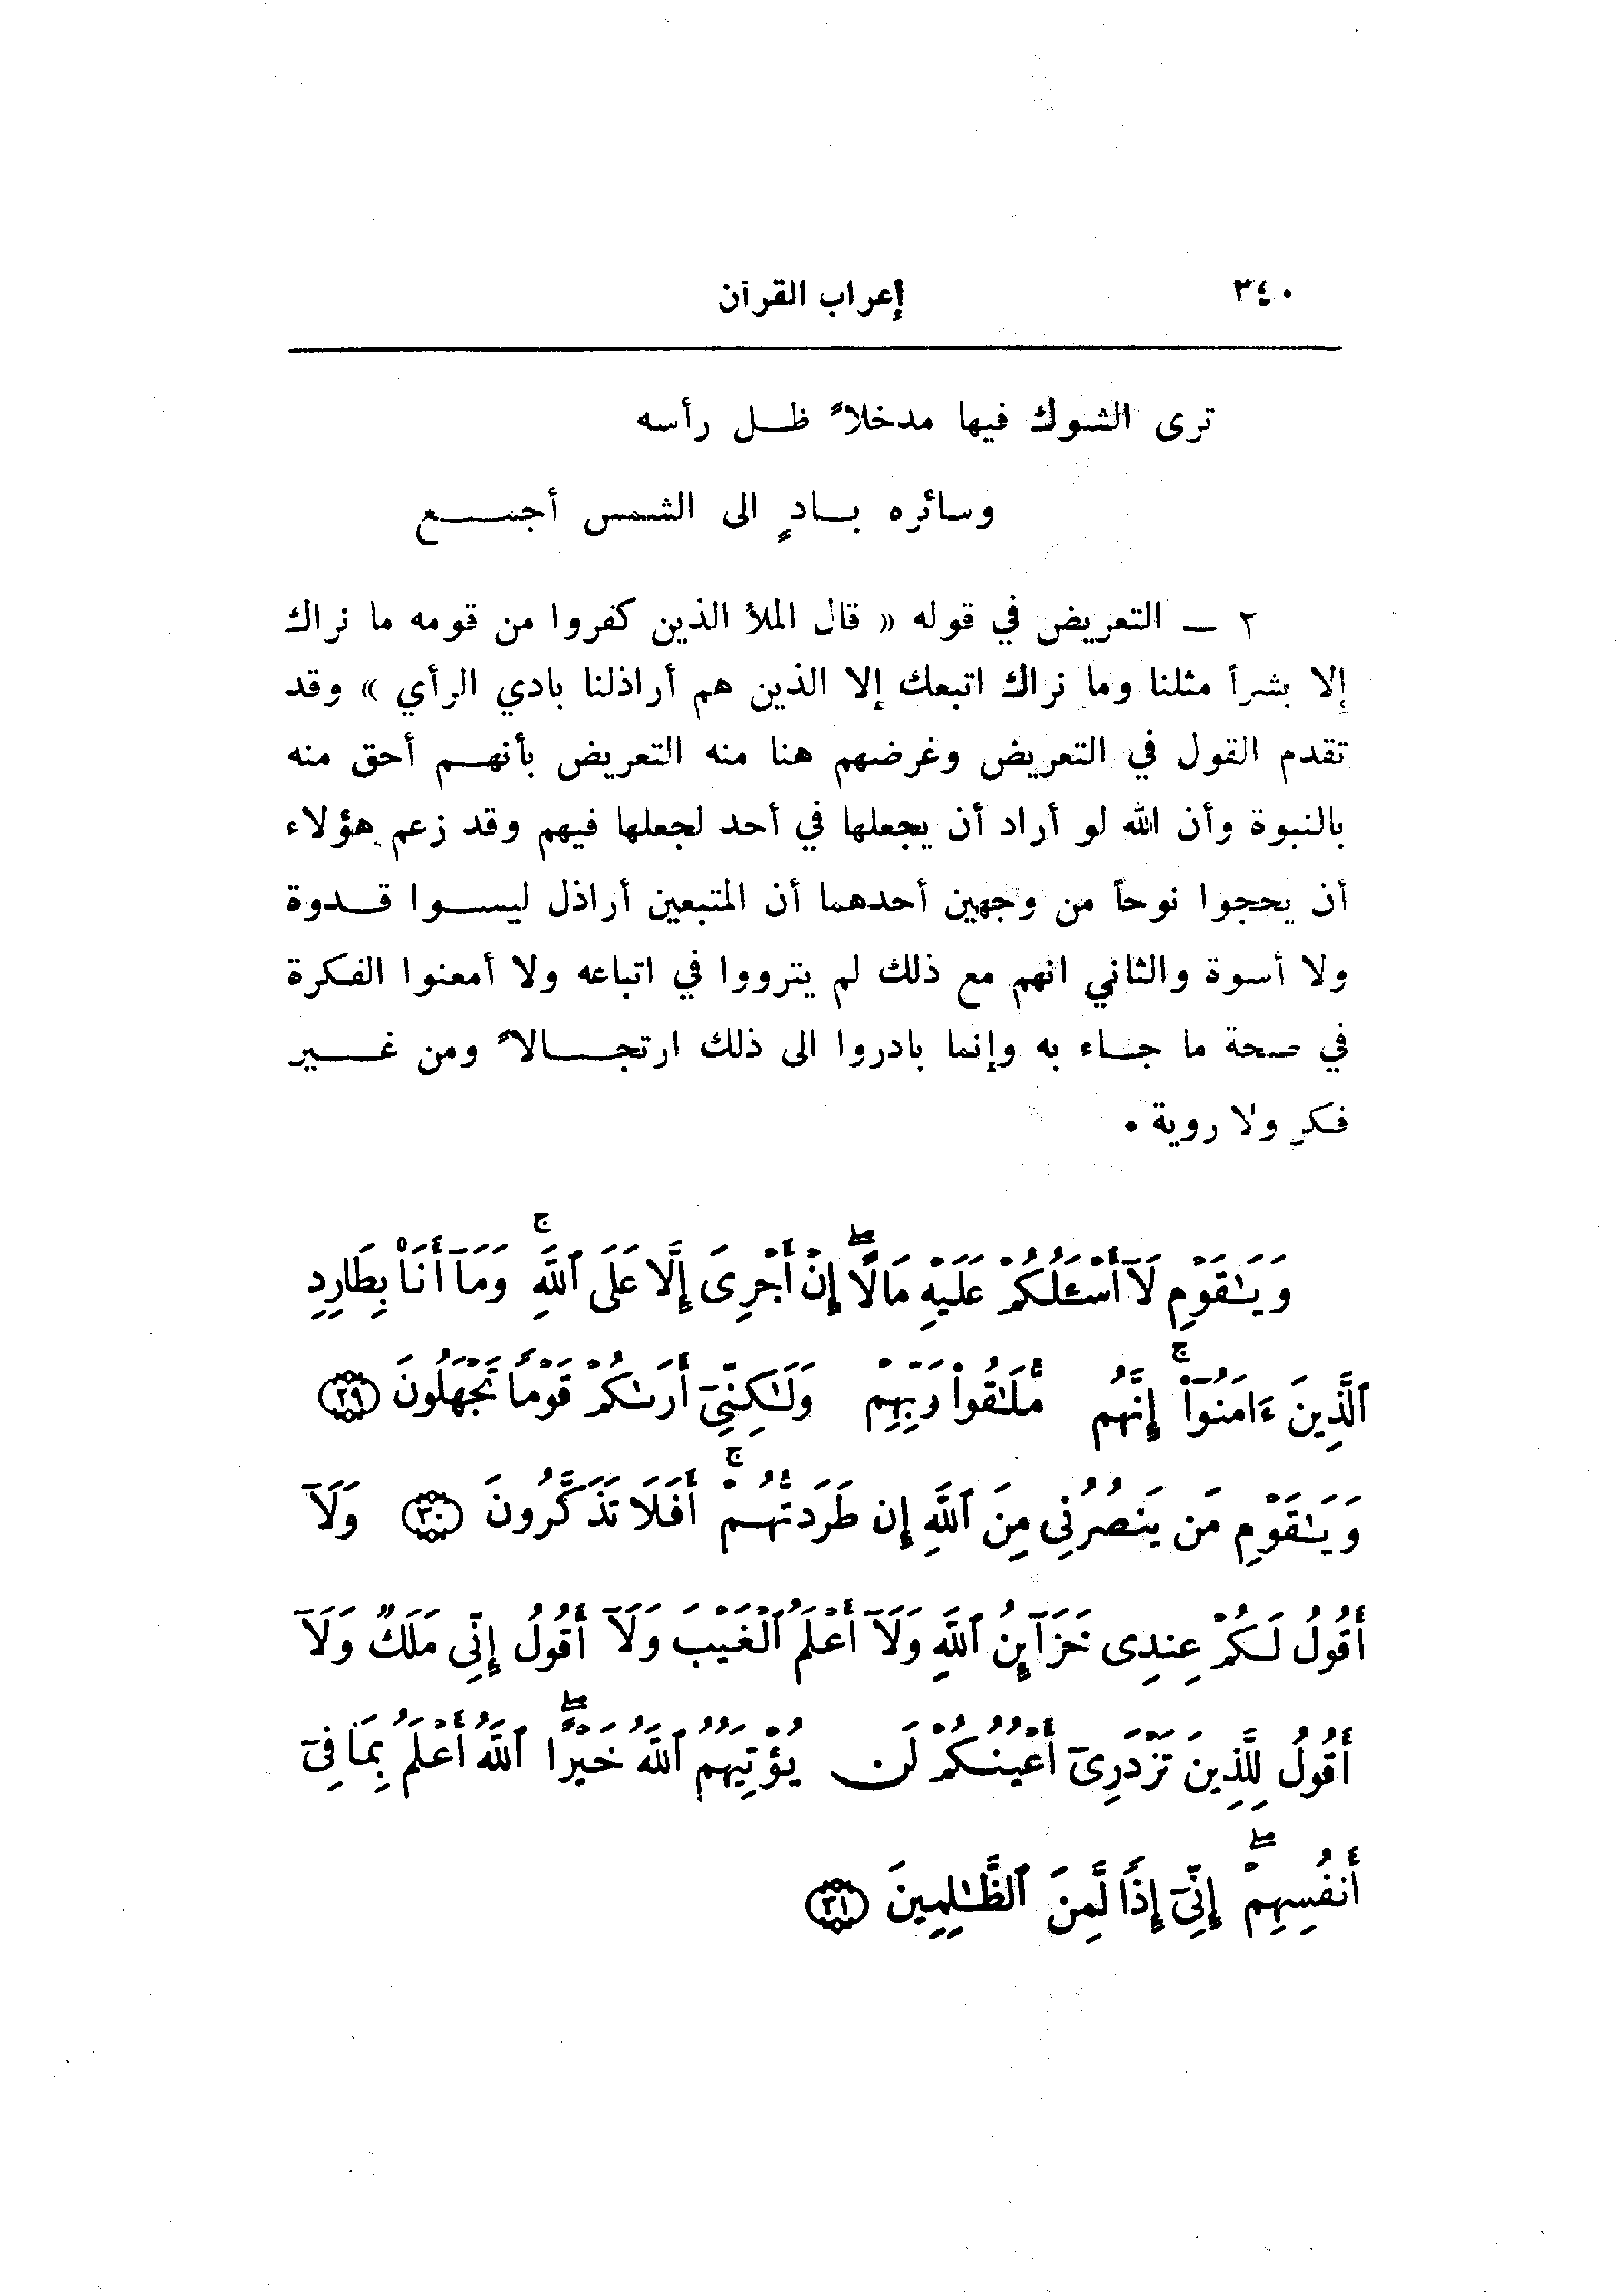 ٣٤٠ إعراب القرآن
ترى الشوك فيها مدخلاً ظل رأسه
وسائره بادٍ الى الشمس أجمع
٢ — التعريض في قوله « قال الملأ الذين كفروا من قومه ما نراك
إلا بشراً مثلنا وما نراك اتبعك إلا الذين هم أراذلنا بادي الرأي » وقد
تقدم القول في التعريض وغرضهم هنا منه التعريض بأنهم أحق منه
بالنبوة وأن الله لو أراد أن يجعلها في أحد لجعلها فيهم وقد زعم هؤلاء
أن يحجوا نوحاً من وجهين أحدهما أن المتبعين أراذل ليسوا قدوة
ولا أسوة والثاني انهم مع ذلك لم يترووا في اتباعه ولا أمعنوا الفكرة
في صحة ما جاء به وإنما بادروا الى ذلك ارتجالاً ومن غير
فكر ولا روية .
وَيَـٰقَوْمِ لَآ أَسْـَٔلُكُمْ عَلَيْهِ مَالًا ۖ إِنْ أَجْرِىَ إِلَّا عَلَى ٱللَّهِ ۚ وَمَآ أَنَا۠ بِطَارِدِ
ٱلَّذِينَ ءَامَنُوٓا۟ ۚ إِنَّهُم مُّلَـٰقُوا۟ رَبِّهِمْ وَلَـٰكِنِّىٓ أَرَىٰكُمْ قَوْمًا تَجْهَلُونَ ﴿٢٩﴾
وَيَـٰقَوْمِ مَن يَنصُرُنِى مِنَ ٱللَّهِ إِن طَرَدتُّهُمْ ۚ أَفَلَا تَذَكَّرُونَ ﴿٣٠﴾ وَلَآ
أَقُولُ لَكُمْ عِندِى خَزَآئِنُ ٱللَّهِ وَلَآ أَعْلَمُ ٱلْغَيْبَ وَلَآ أَقُولُ إِنِّى مَلَكٌ وَلَآ
أَقُولُ لِلَّذِينَ تَزْدَرِىٓ أَعْيُنُكُمْ لَن يُؤْتِيَهُمُ ٱللَّهُ خَيْرًا ۖ ٱللَّهُ أَعْلَمُ بِمَا فِىٓ
أَنفُسِهِمْ ۖ إِنِّىٓ إِذًا لَّمِنَ ٱلظَّـٰلِمِينَ ﴿٣١﴾